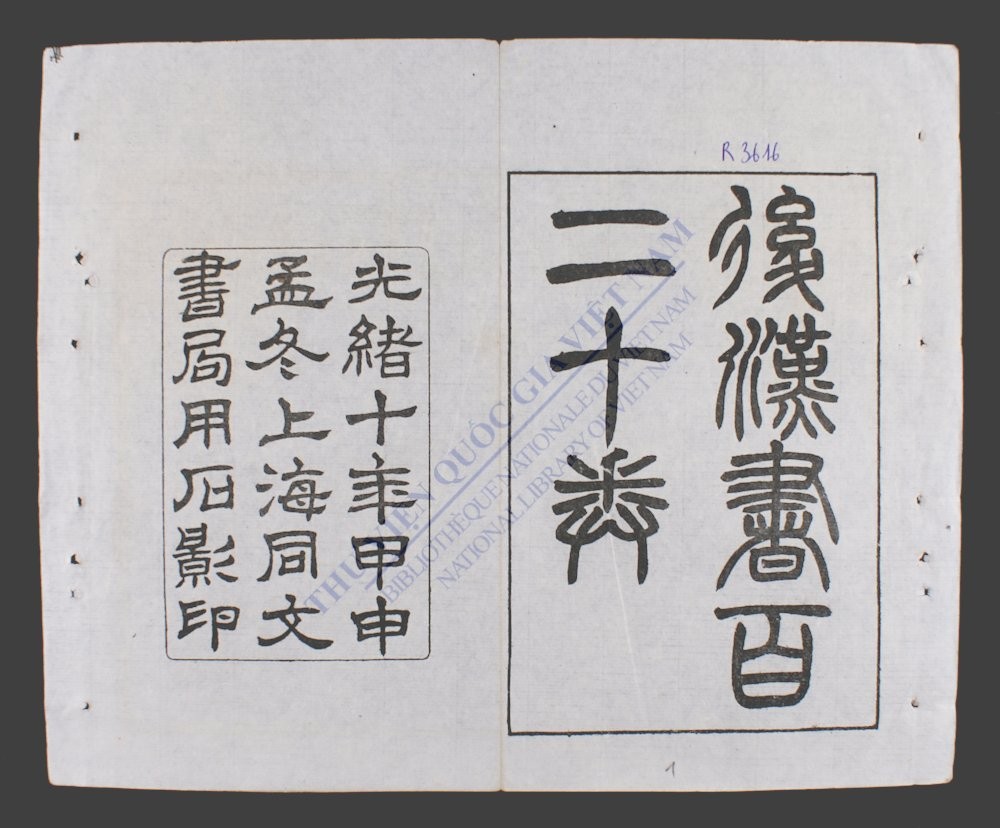 R 3616
後漢書百
二十卷
光緒十年甲申
孟冬上海同文
書局用石影印
1
THƯ VIỆN QUỐC GIA VIỆT NAM
BIBLIOTHÈQUE NATIONALE DU VIETNAM
NATIONAL LIBRARY OF VIETNAM